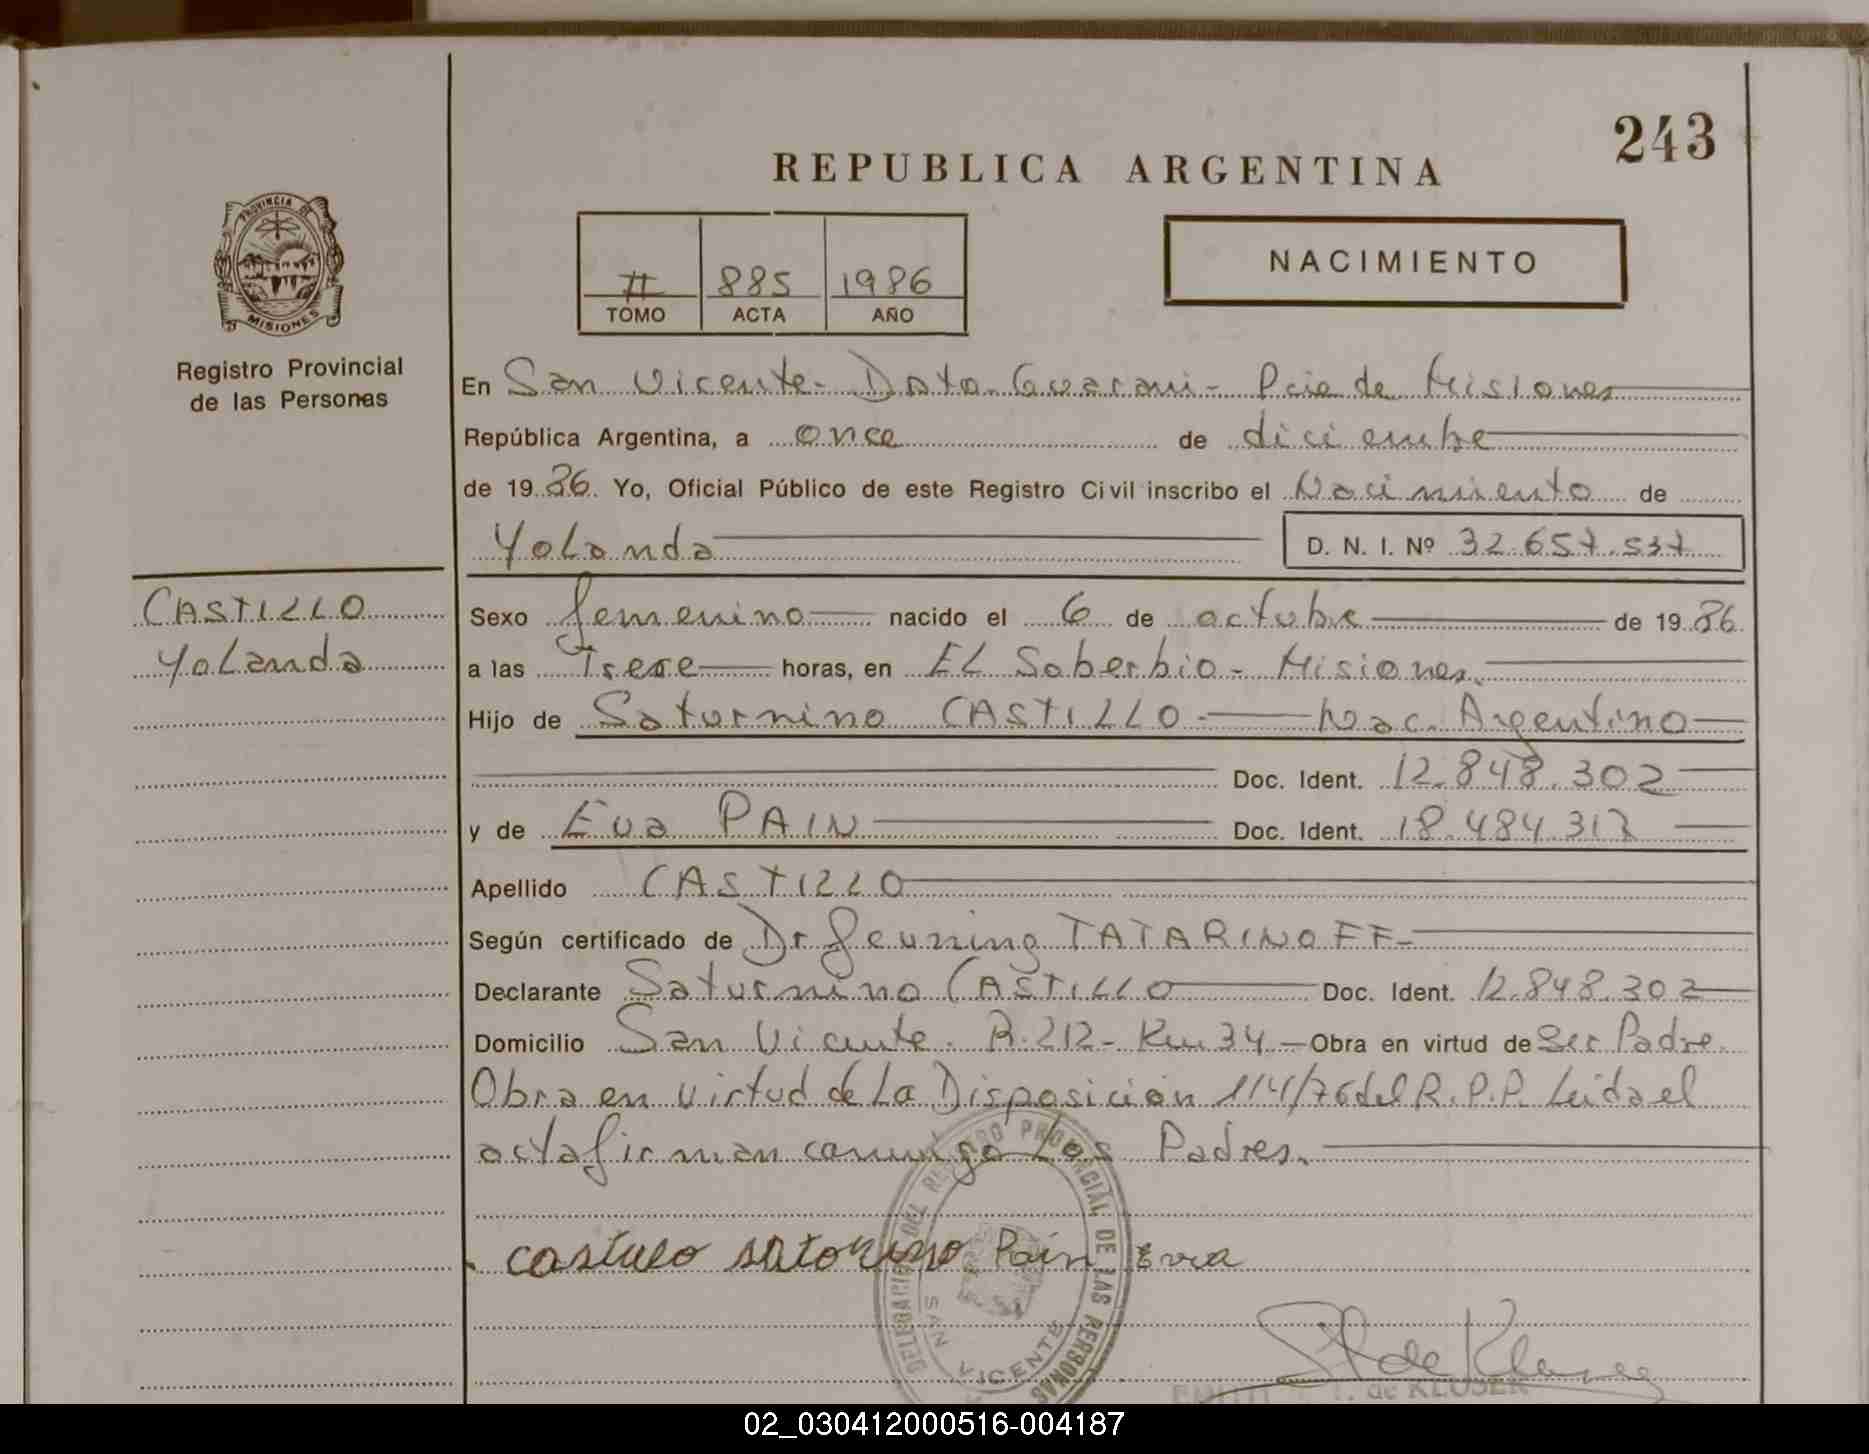 243
REPUBLICA ARGENTINA
PROVINCIA DE
MISIONES
Registro Provincial
de las Personas
II 885 1986
TOMO ACTA AÑO
NACIMIENTO
En San Vicente - Dpto. Guarani - Pcia de Misiones
República Argentina, a once de diciembre
de 19 86. Yo, Oficial Público de este Registro Civil inscribo el Nacimiento de
Yolanda D. N. I. Nº 32.657.537
CASTILLO
Yolanda
Sexo femenino nacido el 6 de octubre de 19 86
a las Trece horas, en EL Soberbio - Misiones.
Hijo de Saturnino CASTILLO - Nac. Argentino
Doc. Ident. 12.848.302
y de Eva PAIN Doc. Ident. 18.484.317
Apellido CASTILLO
Según certificado de Dr TATARINOFF-
Declarante Saturnino CASTILLO Doc. Ident. 12.848.302
Domicilio San Vicente. R.212- Km 34 - Obra en virtud de Ser Padre.
Obra en virtud de La Disposición 114/76 del R.P.P. Leida el
acta firman conmigo Los Padres.
castilo satorino Pain Eva
DELEGACION DEL REGISTRO PROVINCIAL DE LAS PERSONAS
SAN VICENTE
de KLUSER
02_030412000516-004187